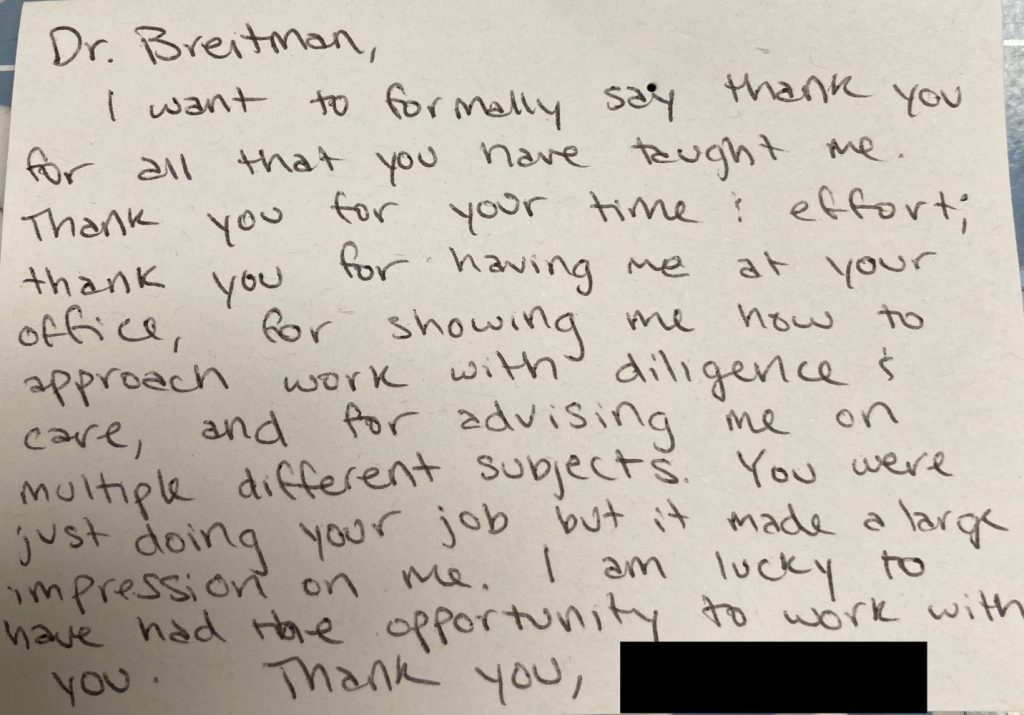 Dr. Breitman,
I want to formally say thank you
for all that you have taught me.
Thank you for your time & effort;
thank you for having me at your
office, for showing me how to
approach work with diligence &
care, and for advising me on
multiple different subjects. You were
just doing your job but it made a large
impression on me. I am lucky to
have had the opportunity to work with
you. Thank you,